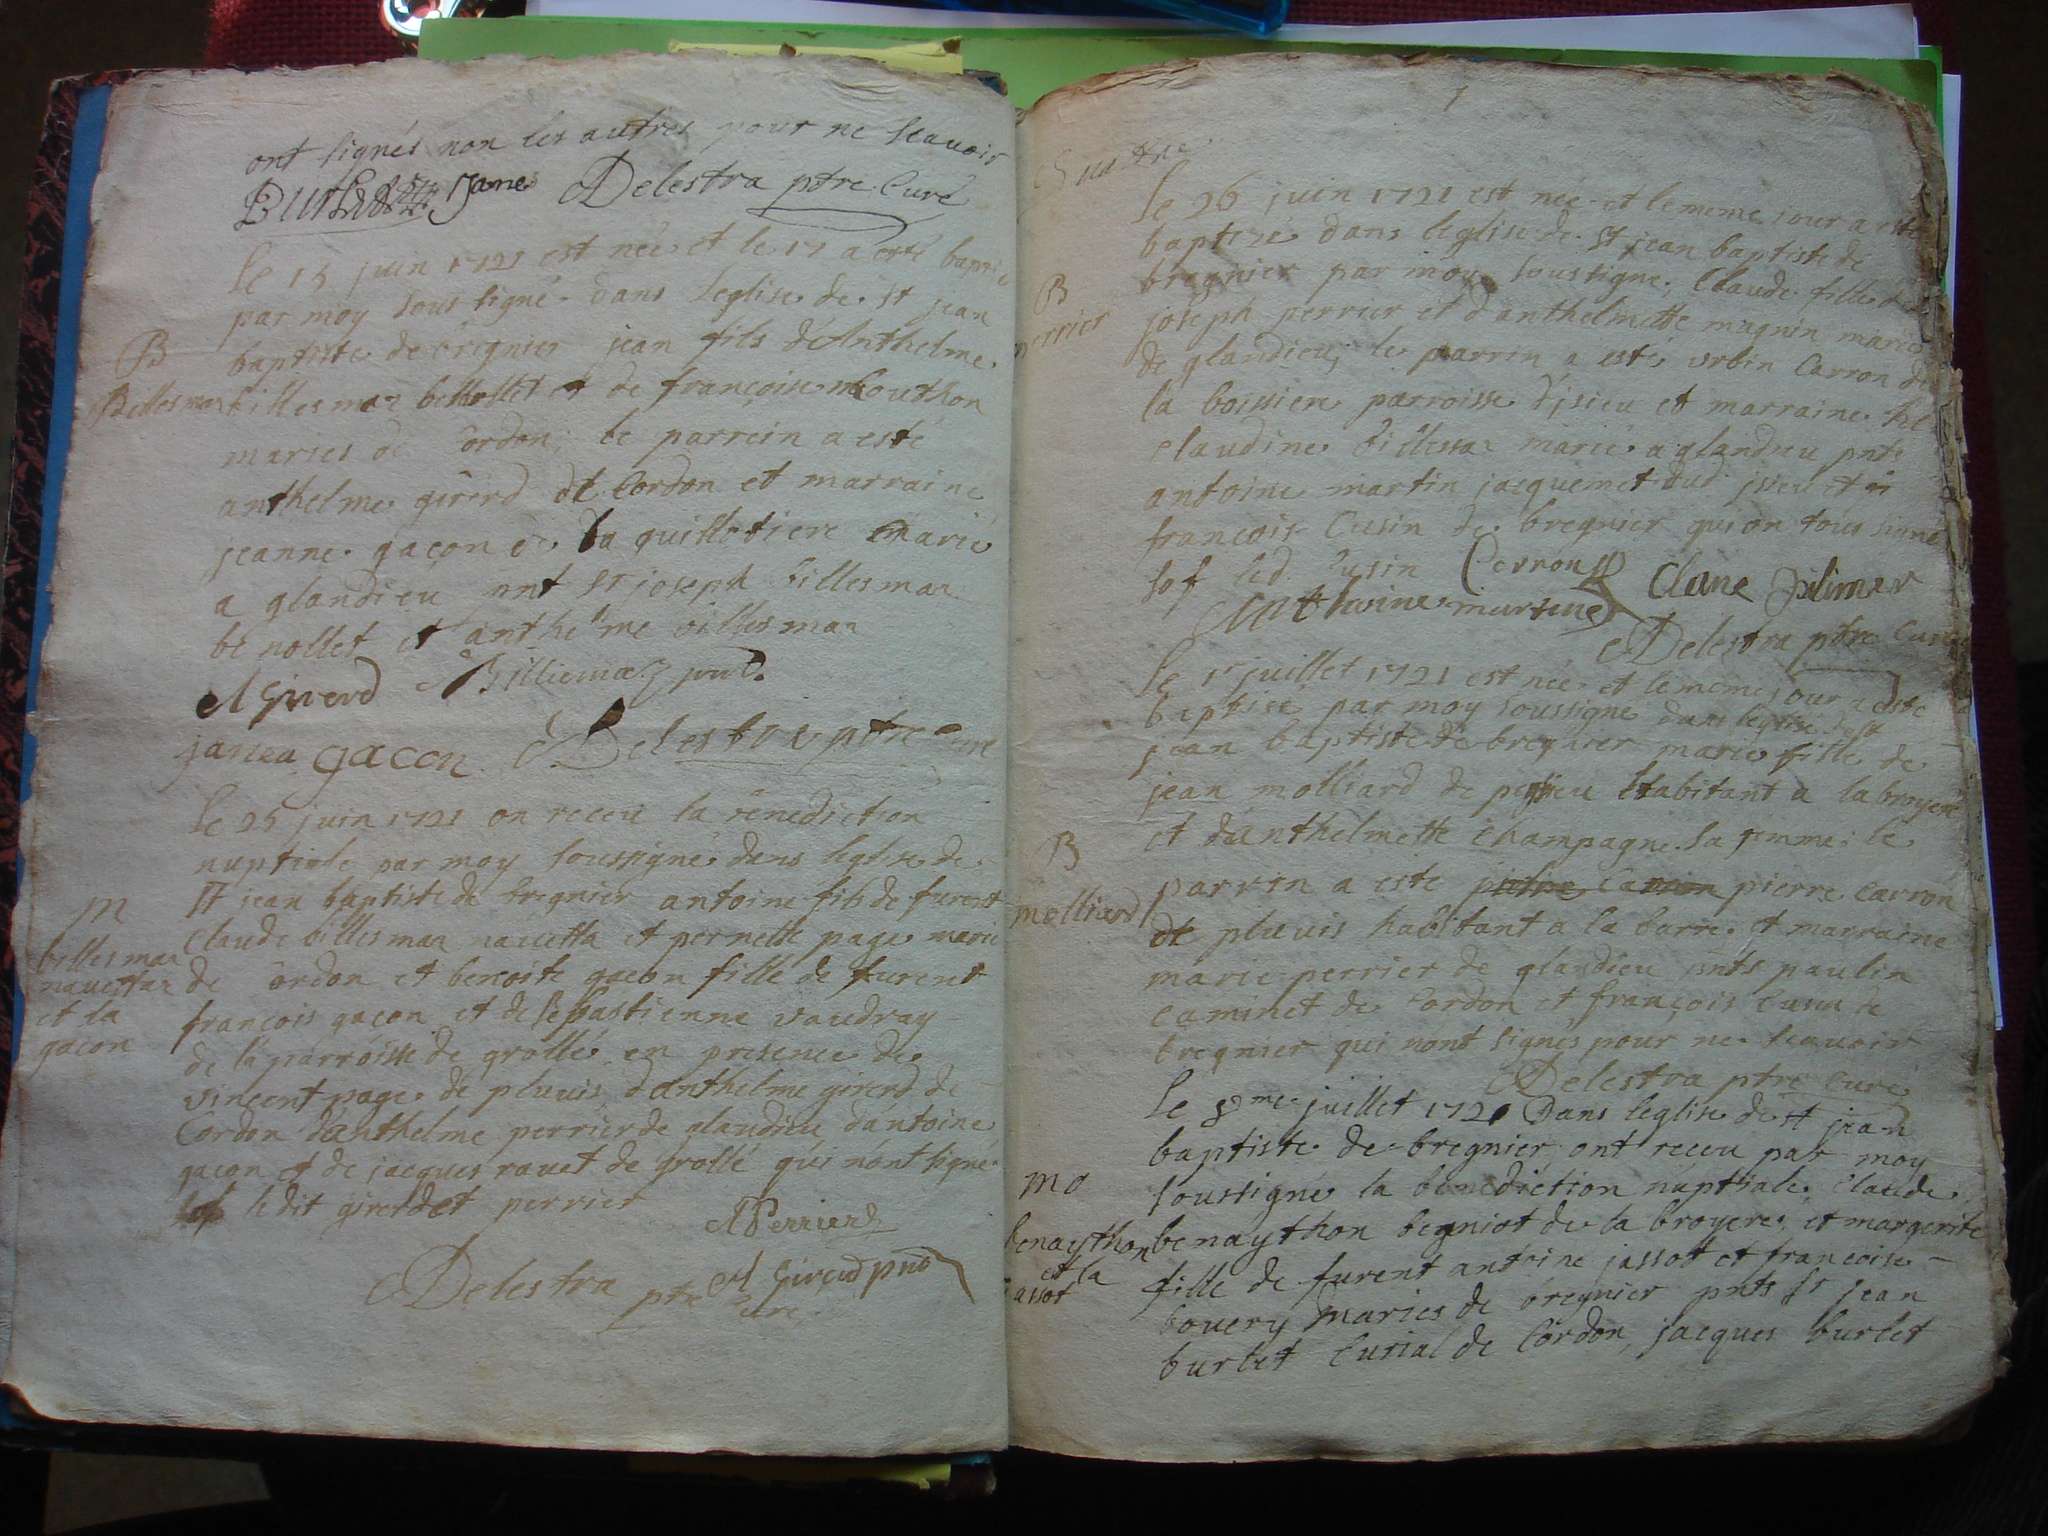 ont signés non les autres pour ne scavoir
Jane Delestra ptre Curé
Le 15 juin 1721 est née et le 17 a esté baptisé
par moy soussigné dans leglise de st jean
baptiste de bregnier jean fils d'Anthelme
B
Billesmaz
billesmaz benollet et de françoise Mouthon
maries de Cordon; le parrein a esté
anthelme girerd de Cordon et marraine
jeanne gaçon de la guillotiere marie
a glandieu pnt sr joseph billesmaz
benollet et anthelme billesmaz
A Girerd Billiemaz pnt
janea gacon Delestra ptre Curé
Le 25 juin 1721 on receu la benediction
nuptiale par moy soussigné dans leglise de
st jean baptiste de bregnier antoine fils de furent
M
billesmaz
navettaz
et la
gacon
claude billesmaz navetta et pernette page marie
de Cordon et benoite gacon fille de furent
françois gacon et de sebastienne vaudray
de la parroisse de grollé en presence de
vincent page de pluvis, d'anthelme girerd de
Cordon d'anthelme perrier de glandieu d'antoine
gacon et de jacques ravet de grollé qui n'ont signé
sof le dit girerd et perrier
A Perrierd
Delestra ptre Curé A Girerd pnt
7
Le 26 juin 1721 est née et le meme jour a esté
baptizé dans leglise de st jean baptiste de
bregnier par moy soussigné, Claude fille de
B
perrier
joseph perrier et d'anthelmette magnin maries
de glandieu, le parrin a esté urbin Carron de
la boissiere parroisse d'jsieu et marraine
claudine billesmaz marié a glandieu pnts
antoine martin jacquemet dud jsieu et
françois Cusin de bregnier qui on tous signé
sof led. Cusin Carron
Delestra ptre Curé
Le 1r juillet 1721 est née et le meme jour a esté
baptisée par moy soussigné dans leglise de st
jean baptiste de bregnier marie fille de
jean molliard de peysieu habitant a la broyere
et d'anthelmette champagne sa femme: le
B
molliard
parrin a este pierre carron
de pluvis habitant a la barre et marraine
marie perrier de glandieu pnts paulin
caminet de Cordon et françois Cusin de
bregnier qui nont signés pour ne scavoir
Delestra ptre Curé
Le 8me juillet 1721 Dans leglise de st jean
baptiste de bregnier ont receu par moy
soussigné la benediction nuptiale claude
benaython begniot de la broyere et margerite
fille de furent antoine jassot et françoise
bovery maries de bregnier pnts sr jean
burlet curial de Cordon, jacques burlet
benaython
et la
jassot